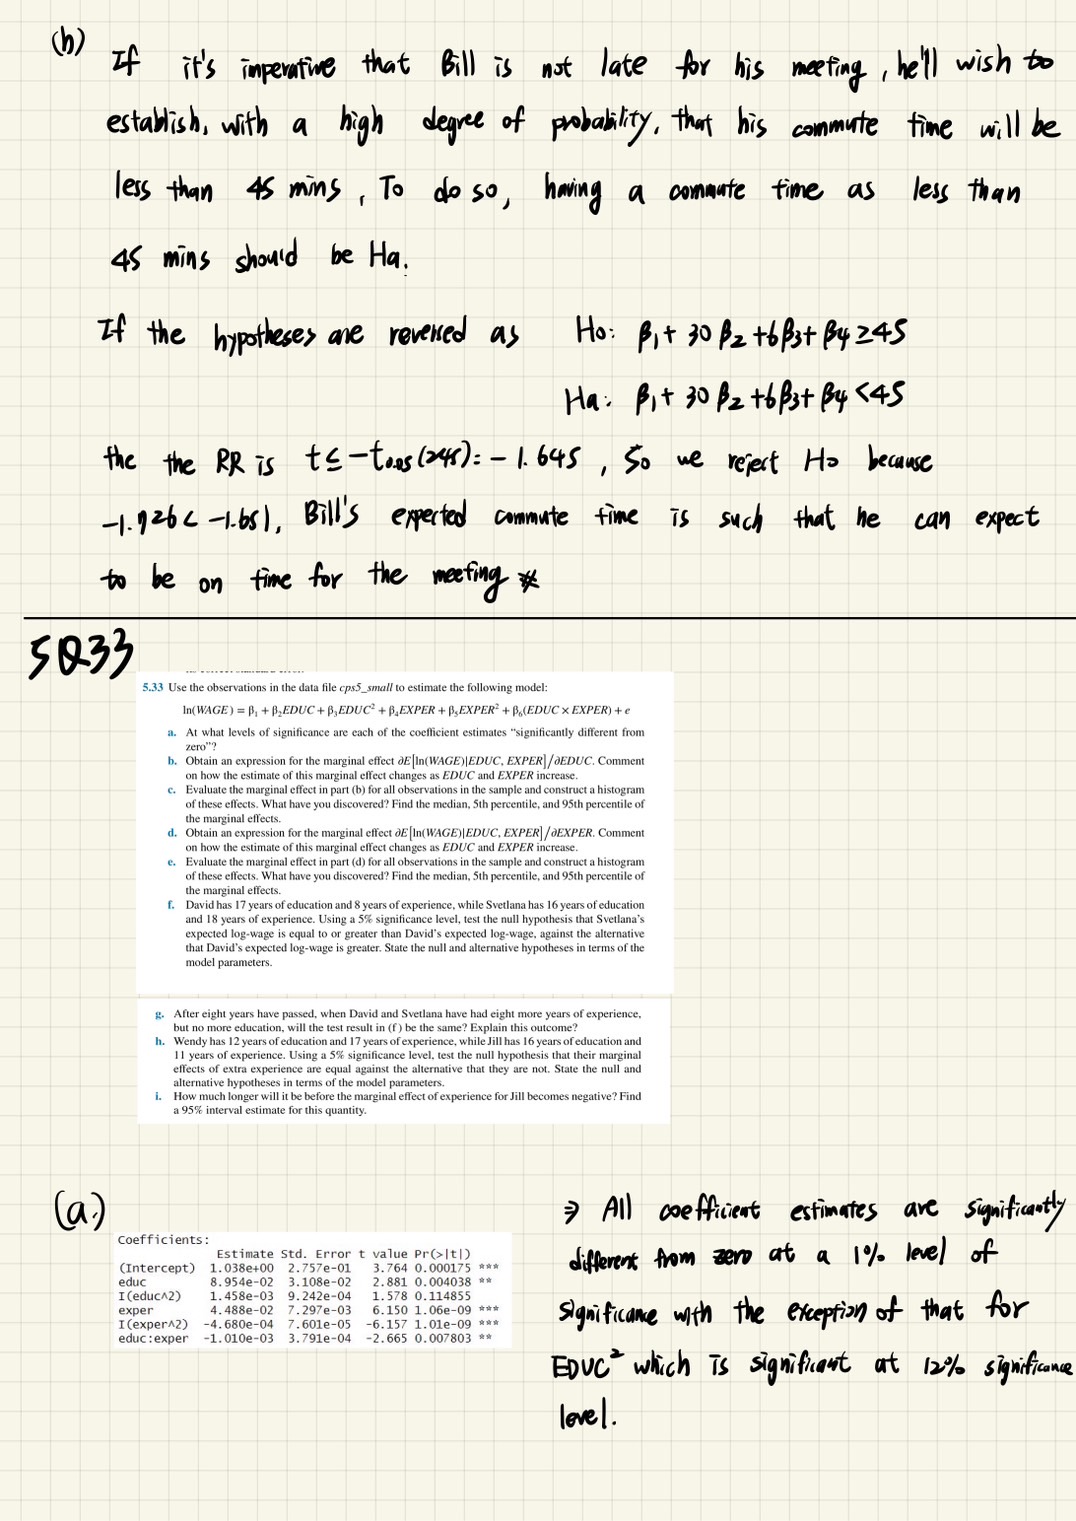 (h)
If it's imperative that Bill is not late for his meeting, he'll wish to
establish, with a high degree of probability, that his commute time will be
less than 45 mins, To do so, having a commute time as less than
45 mins should be Ha.
If the hypotheses are reversed as Ho: β1+ 30β2+6β3+β4≥45
Ha: β1+ 30β2+6β3+β4<45
the the RR is t≤-t0.05(245)=-1.645, So we reject Ho because
-1.726<-1.651, Bill's expected commute time is such that he can expect
to be on time for the meeting ※
5Q33
5.33 Use the observations in the data file cps5_small to estimate the following model:
ln(WAGE) = β1 + β2EDUC + β3EDUC² + β4EXPER + β5EXPER² + β6(EDUC × EXPER) + e
a. At what levels of significance are each of the coefficient estimates “significantly different from
zero”?
b. Obtain an expression for the marginal effect ∂E[ln(WAGE)|EDUC, EXPER]/∂EDUC. Comment
on how the estimate of this marginal effect changes as EDUC and EXPER increase.
c. Evaluate the marginal effect in part (b) for all observations in the sample and construct a histogram
of these effects. What have you discovered? Find the median, 5th percentile, and 95th percentile of
the marginal effects.
d. Obtain an expression for the marginal effect ∂E[ln(WAGE)|EDUC, EXPER]/∂EXPER. Comment
on how the estimate of this marginal effect changes as EDUC and EXPER increase.
e. Evaluate the marginal effect in part (d) for all observations in the sample and construct a histogram
of these effects. What have you discovered? Find the median, 5th percentile, and 95th percentile of
the marginal effects.
f. David has 17 years of education and 8 years of experience, while Svetlana has 16 years of education
and 18 years of experience. Using a 5% significance level, test the null hypothesis that Svetlana’s
expected log-wage is equal to or greater than David’s expected log-wage, against the alternative
that David’s expected log-wage is greater. State the null and alternative hypotheses in terms of the
model parameters.
g. After eight years have passed, when David and Svetlana have had eight more years of experience,
but no more education, will the test result in (f) be the same? Explain this outcome?
h. Wendy has 12 years of education and 17 years of experience, while Jill has 16 years of education and
11 years of experience. Using a 5% significance level, test the null hypothesis that their marginal
effects of extra experience are equal against the alternative that they are not. State the null and
alternative hypotheses in terms of the model parameters.
i. How much longer will it be before the marginal effect of experience for Jill becomes negative? Find
a 95% interval estimate for this quantity.
(a.)
Coefficients:
Estimate Std. Error t value Pr(>|t|)
(Intercept) 1.038e+00 2.757e-01 3.764 0.000175 ***
educ 8.954e-02 3.108e-02 2.881 0.004038 **
I(educ^2) 1.458e-03 9.242e-04 1.578 0.114855
exper 4.488e-02 7.297e-03 6.150 1.06e-09 ***
I(exper^2) -4.680e-04 7.601e-05 -6.157 1.01e-09 ***
educ:exper -1.010e-03 3.791e-04 -2.665 0.007803 **
⇒ All coefficient estimates are significantly
different from zero at a 1% level of
significance with the exception of that for
EDUC² which is significant at 12% significance
level.